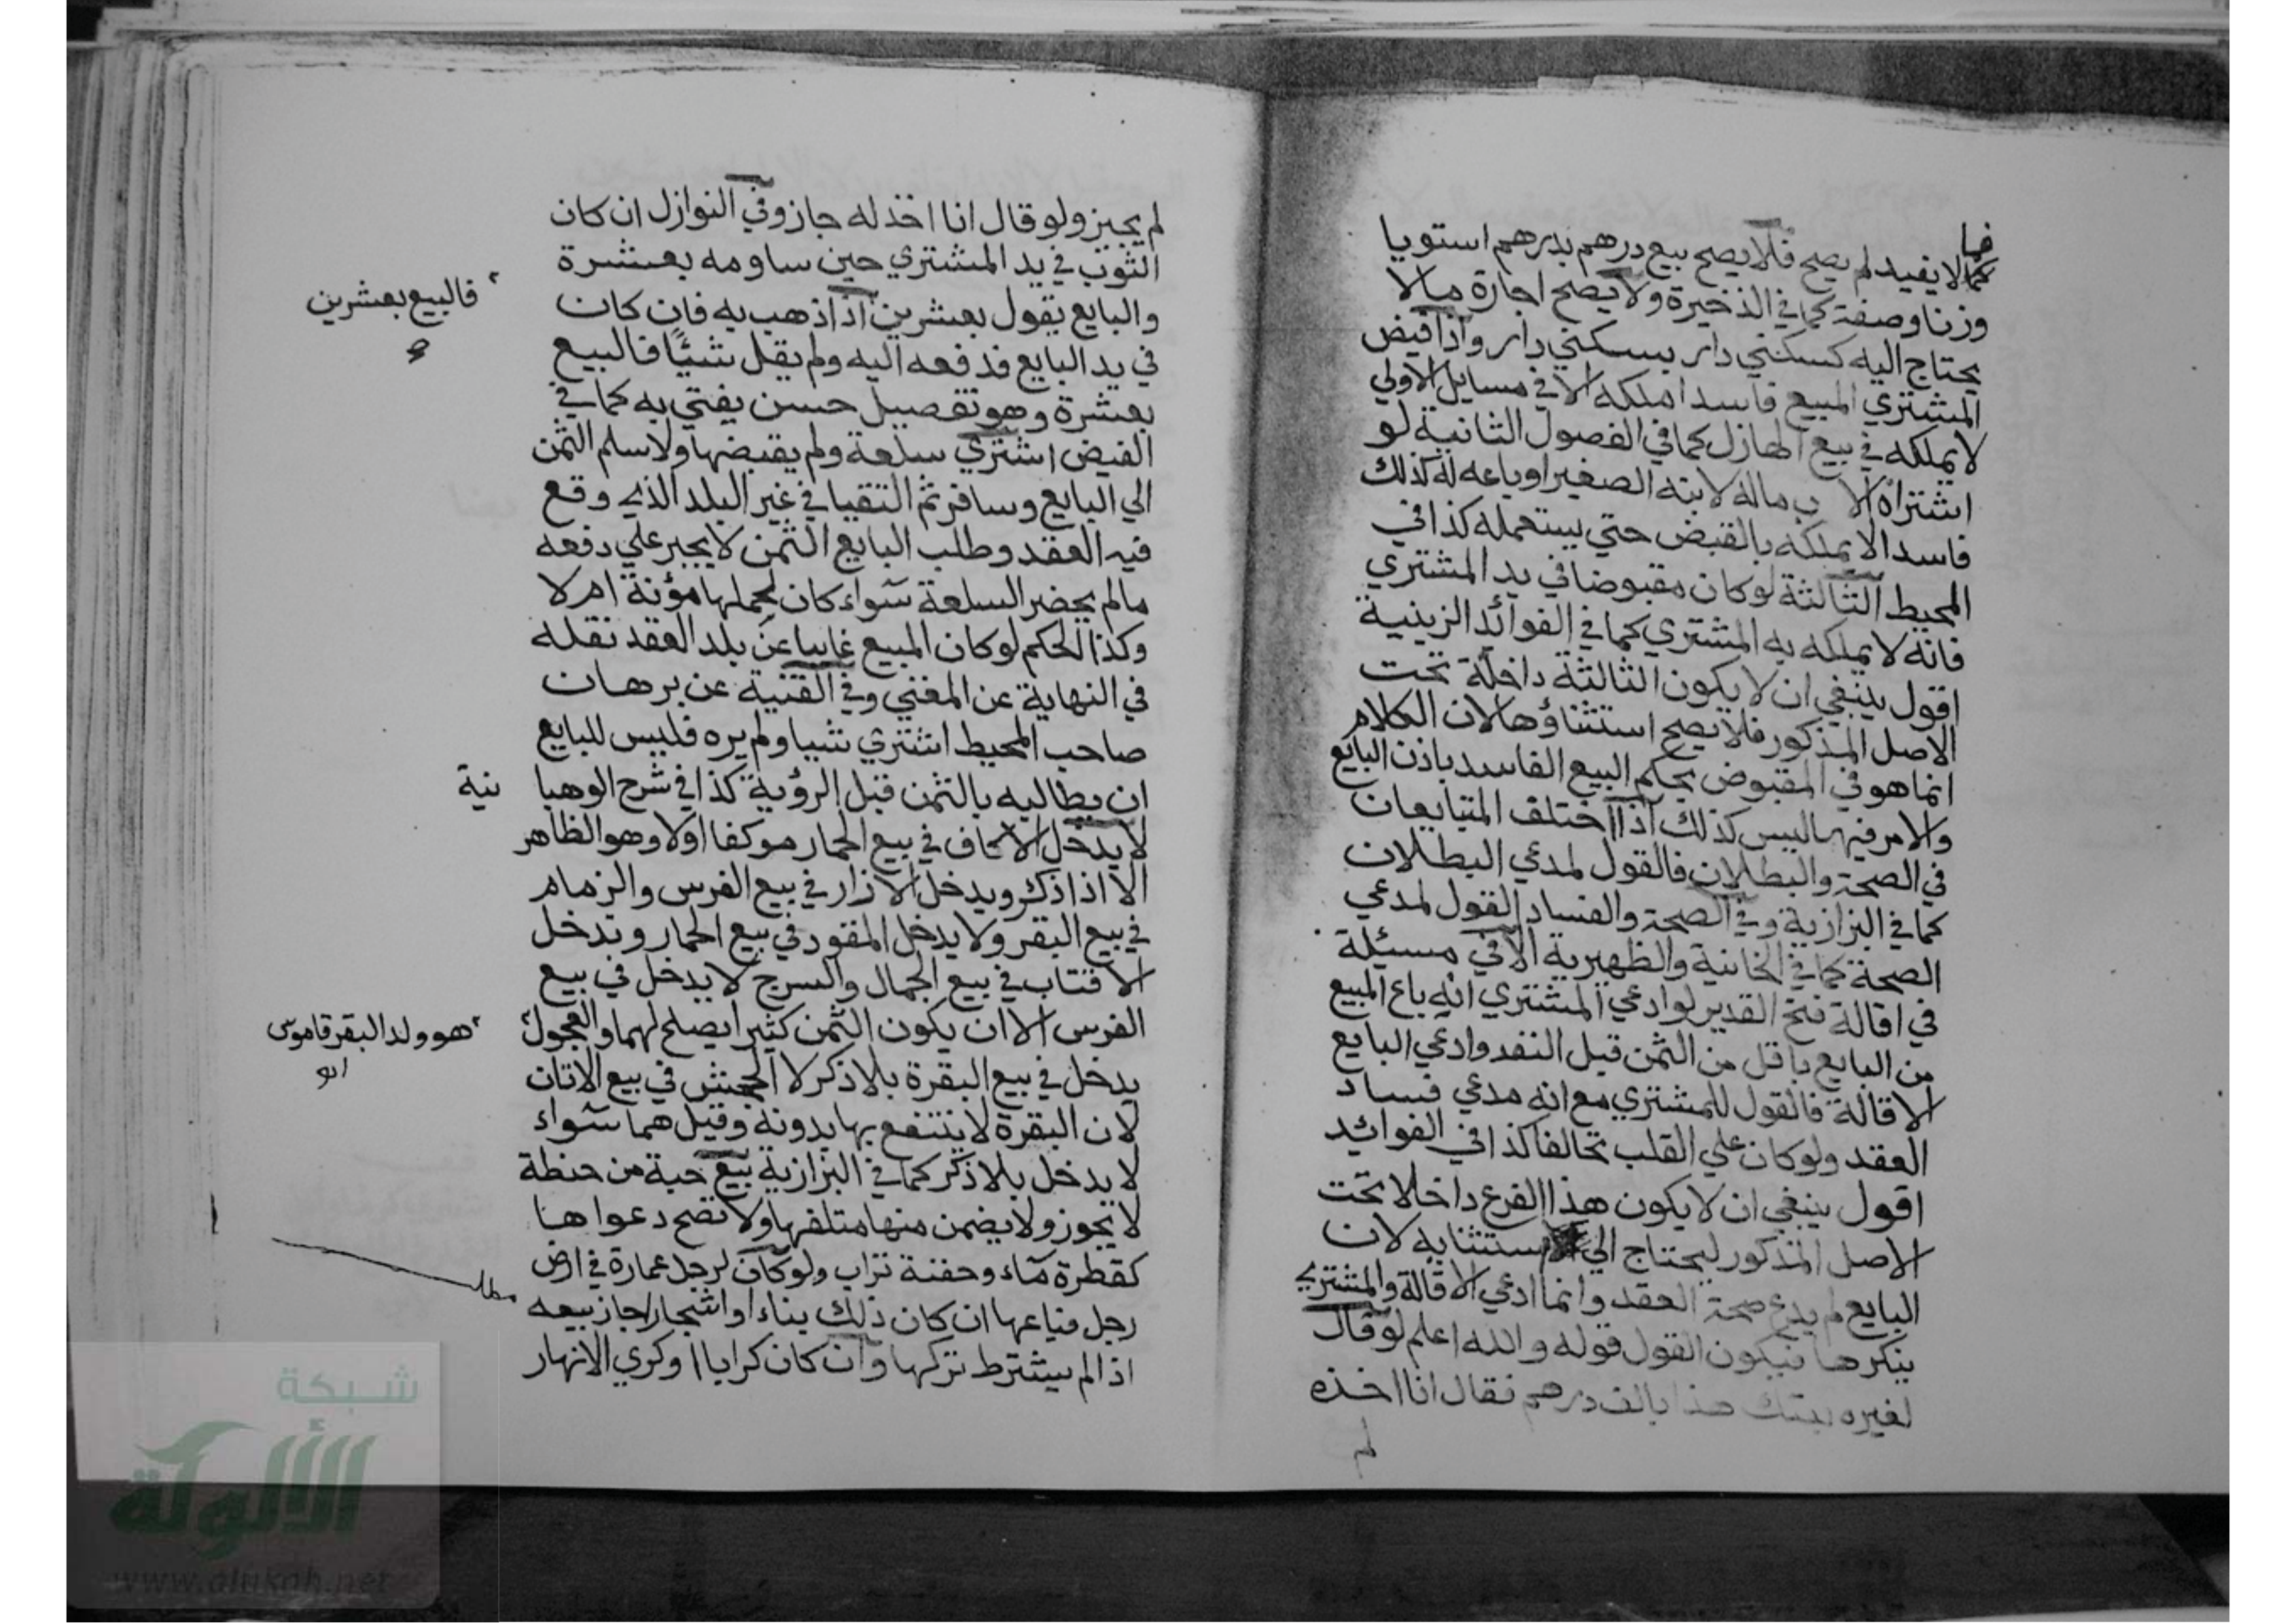 فما
كمالايفيد لم يصح فلا يصح بيع درهم بدرهم استويا
وزنا وصفة كما في الذخيرة ولا يصح اجارة مالا
يحتاج اليه كسكني دار بسكني دار واذا قبض
المشتري المبيع فاسدا ملكه الا في مسايل الاولي
لا يملكه في بيع الهازل كما في الفصول الثانية لو
اشتراه الاب ماله لابنه الصغير او باعه له كذلك
فاسدا لا يملكه بالقبض حتي يستعمله كذا في
المحيط الثالثة لو كان مقبوضا في يد المشتري
فانه لا يملكه به المشتري كما في الفوائد الزينية
اقول ينبغي ان لا يكون الثالثة داخلة تحت
الاصل المذكور فلا يصح استثناؤها لان الكلام
انما هو في المقبوض بحكم البيع الفاسد باذن البايع
والامر فيها ليس كذلك اذا اختلف المتبايعان
في الصحة والبطلان فالقول لمدعي البطلان
كما في البزازية وفي الصحة والفساد القول لمدعي
الصحة كما في الخانية والظهيرية الا في مسئلة
في اقالة فتح القدير لو ادعي المشتري انه باع المبيع
من البايع باقل من الثمن قبل النقد وادعي البايع
الاقالة فالقول للمشتري مع انه مدعي فساد
العقد ولو كان علي القلب تحالفا كذا في الفوائد
اقول ينبغي ان لا يكون هذا الفرع داخلا تحت
الاصل المذكور ليحتاج الي استثنايه لان
البايع لم يدع صحة العقد وانما ادعي الاقالة والمشتري
ينكرها فيكون القول قوله والله اعلم لو قال
لغيره بعتك هذا بالف درهم فقال انا اخذه
لم
لم يجيز ولو قال انا اخذ له جاز وفي النوازل ان كان
الثوب في يد المشتري حين ساومه بعشرة
والبايع يقول بعشرين اذا ذهب به فان كان
فالبيع بعشرين
في يد البايع فدفعه اليه ولم يقل شيئا فالبيع
بعشرة وهو تفصيل حسن يفتي به كما في
الفيض اشتري سلعة ولم يقبضها ولا سلم الثمن
الي البايع وسافر ثم التقيا في غير البلد الذي وقع
فيه العقد وطلب البايع الثمن لا يجبر علي دفعه
مالم يحضر السلعة سواء كان لحملها مؤنة ام لا
وكذا الحكم لو كان المبيع غايبا عن بلد العقد نقله
في النهاية عن المغني وفي القنية عن برهان
صاحب المحيط اشتري شيا ولم يره فليس للبايع
ان يطالبه بالثمن قبل الرؤية كذا في شرح الوهبا نية
لا يدخل الاكاف في بيع الحمار موكفا اولا وهو الظاهر
الا اذا ذكر ويدخل الازار في بيع الفرس والزمام
في بيع البقر ولا يدخل المقود في بيع الحمار ويدخل
الاقتاب في بيع الجمال والسرج لا يدخل في بيع
الفرس الا ان يكون الثمن كثيرا يصلح لهما والعجول
هو ولد البقر قاموس
يدخل في بيع البقرة بلا ذكر لا الجحش في بيع الاتان
لان البقرة لا ينتفع بها بدونه وقيل هما سواء
لا يدخل بلا ذكر كما في البزازية بيع حبة من حنطة
لا يجوز ولا يضمن منها متلفها ولا تصح دعواها
كقطرة ماء وحفنة تراب ولو كان لرجل عمارة في ارض
مطلب
رجل فباعها ان كان ذلك بناء او اشجارا جاز بيعه
اذا لم يشترط تركها وان كان كرابا او كري الانهار
شبكة
الألوكة
www.alukah.net